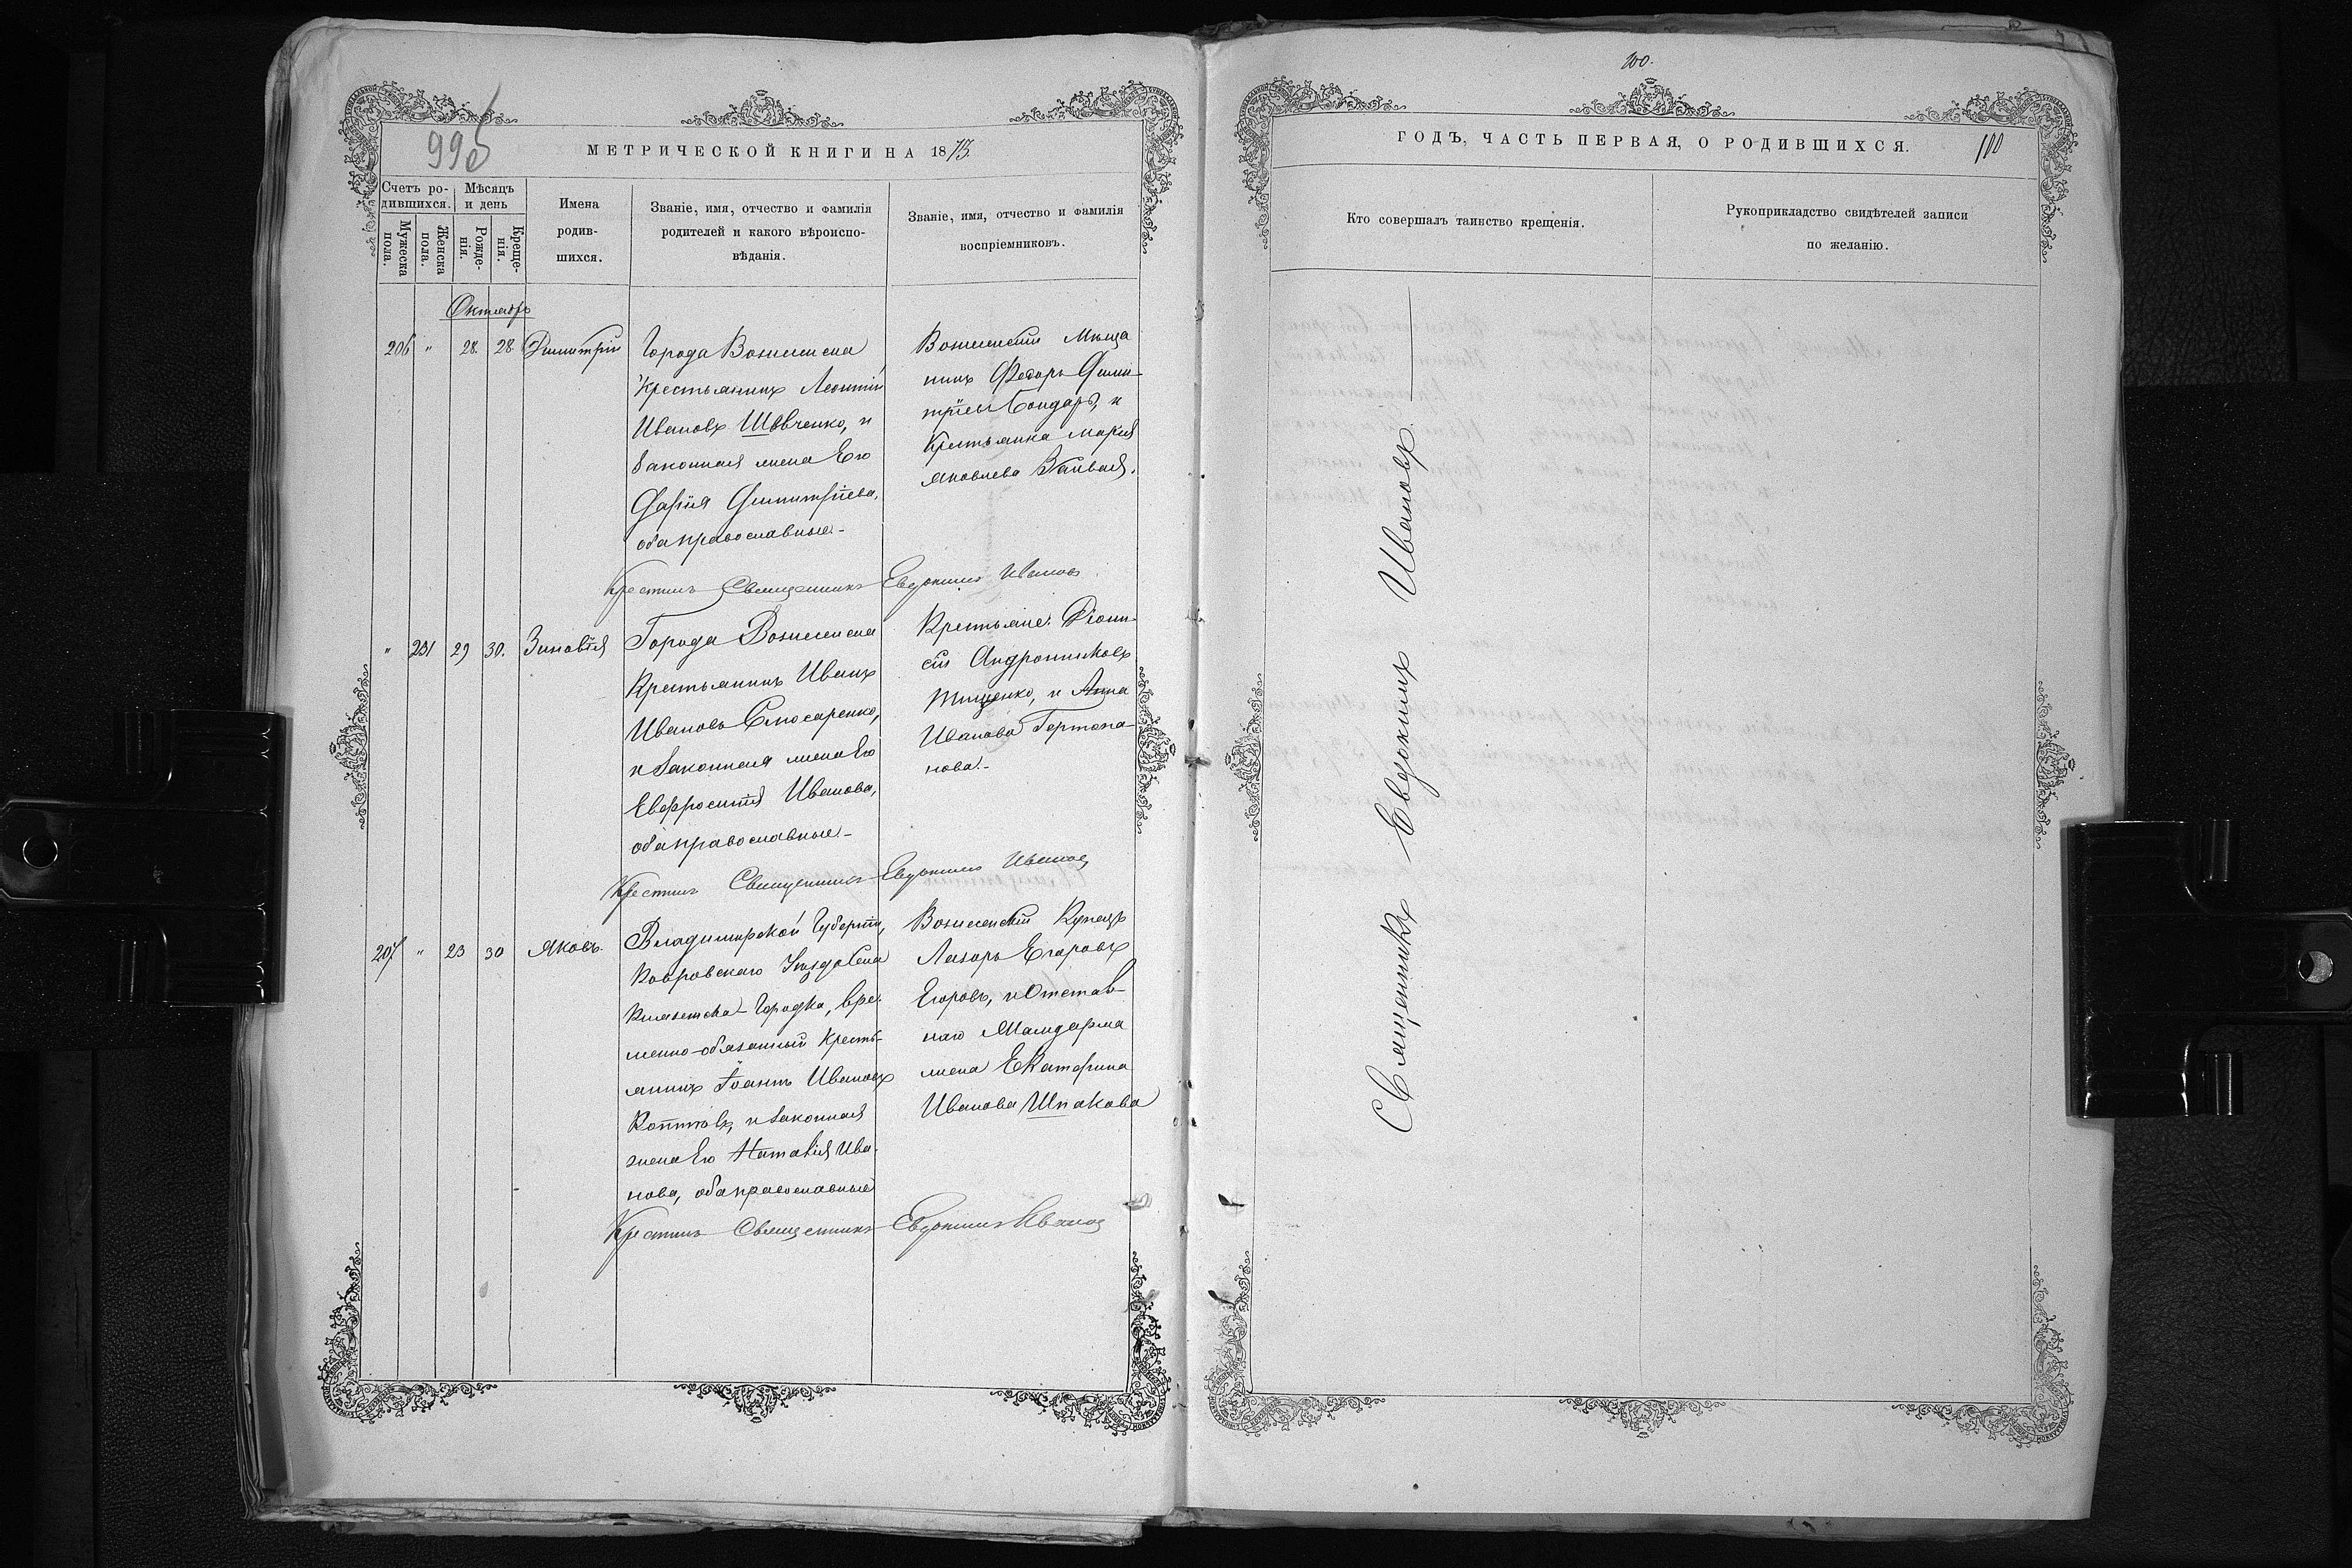 99б
МЕТРИЧЕСКОЙ КНИГИ НА 1875.
Счетъ ро-
дившихся.
Мѣсяцъ
и день
Мужеска
пола.
Женска
пола.
Рожде-
нія.
Креще-
нія.
Имена
родив-
шихся.
Званіе, имя, отчество и фамилія
родителей и какого вѣроиспо-
вѣданія.
Званіе, имя, отчество и фамилія
воспріемниковъ.
Октябрь
206 " 28. 28. Димитрій
Города Вознесенска
Крестьянинъ Леонтій
Ивановъ Шевченко, и
законная жена Его
Дарія Димитріева,
оба православные.-
Вознесенскій Мѣща
нинъ Феодоръ Дими-
тріевъ Бондарь, и
Крестьянка Марія
Яковлева
Крестилъ Священникъ Евдокимъ Ивановъ
" 231 29 30. Зиновія
Города Вознесенска
Крестьянинъ Иванъ
Ивановъ Слюсаренко,
и законная жена Его
Евфросинія Иванова,
оба православные.-
Крестьяне: Діони-
сій Андрониковъ
Тищенко, и Анна
Иванова Гертопа-
нова.-
Крестилъ Священникъ Евдокимъ Ивановъ
207 " 23 30 Яковъ.
Владимирской Губерніи,
Ковровскаго Уѣзда Села
Клязьмска-Городка, вре-
менно-обязанный Кресть-
янинъ Іоаннъ Ивановъ
и законная
жена Его Наталія Ива-
нова, оба православные
Вознесенскій Купецъ
Лазорь Егоровъ
Егоровъ, и Отстав-
наго Жандарма
жена Екатерина
Иванова Шпакова
Крестилъ Священникъ Евдокимъ Ивановъ
100.
ГОДЪ, ЧАСТЬ ПЕРВАЯ, О РОДИВШИХСЯ.
100
Кто совершалъ таинство крещенія.
Рукоприкладство свидѣтелей записи
по желанію.
Священникъ Евдокимъ Ивановъ